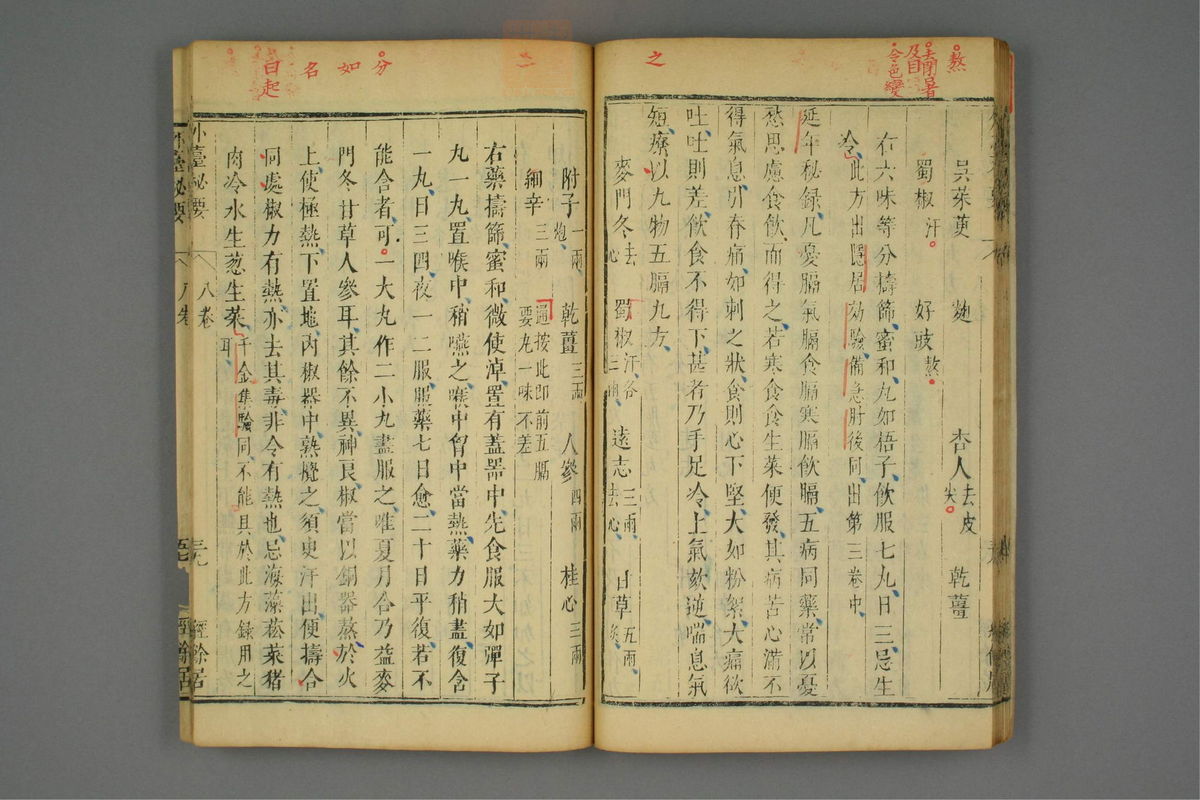 熬
去閉口者
及目
令色變
之
吳茱萸　麴　杏人去皮尖　乾薑
蜀椒汗　好豉熬
右六味等分擣篩蜜和丸如梧子飲服七丸日三忌生
冷此方出隱居効驗備急肘後同出第三卷中
延年秘録凡憂膈氣膈食膈寒膈飲膈五病同藥常以憂
愁思慮食飲而得之若寒食食生菜便發其病苦心滿不
得氣息引脊痛如刺之狀食則心下堅大如粉絮大痛欲
吐吐則差飲食不得下甚者乃手足冷上氣欬逆喘息氣
短療以九物五膈丸方
麥門冬去心　蜀椒汗各三兩　遠志三兩去心　甘草五兩炙
附子一兩炮　乾薑三兩　人參四兩　桂心三兩
細辛三兩　通按此即前五膈要丸一味不差
右藥擣篩蜜和微使淖置有蓋器中先食服大如彈子
丸一丸置喉中稍嚥之喉中胷中當熱藥力稍盡復含
一丸日三四夜一二服服藥七日愈二十日平復若不
能含者可一大丸作二小丸盡服之唯夏月合乃益麥
門冬甘草人參耳其餘不異神良椒當以銅器熬於火
上使極熱下置地內椒器中熟攪之須臾汗出便擣合
同處椒力有熱亦去其毒非令有熱也忌海藻菘菜猪
肉冷水生葱生菜千金集驗同不能具於此方録用之耳
分
如
名
白起
外臺秘要　八卷　三九　經餘居